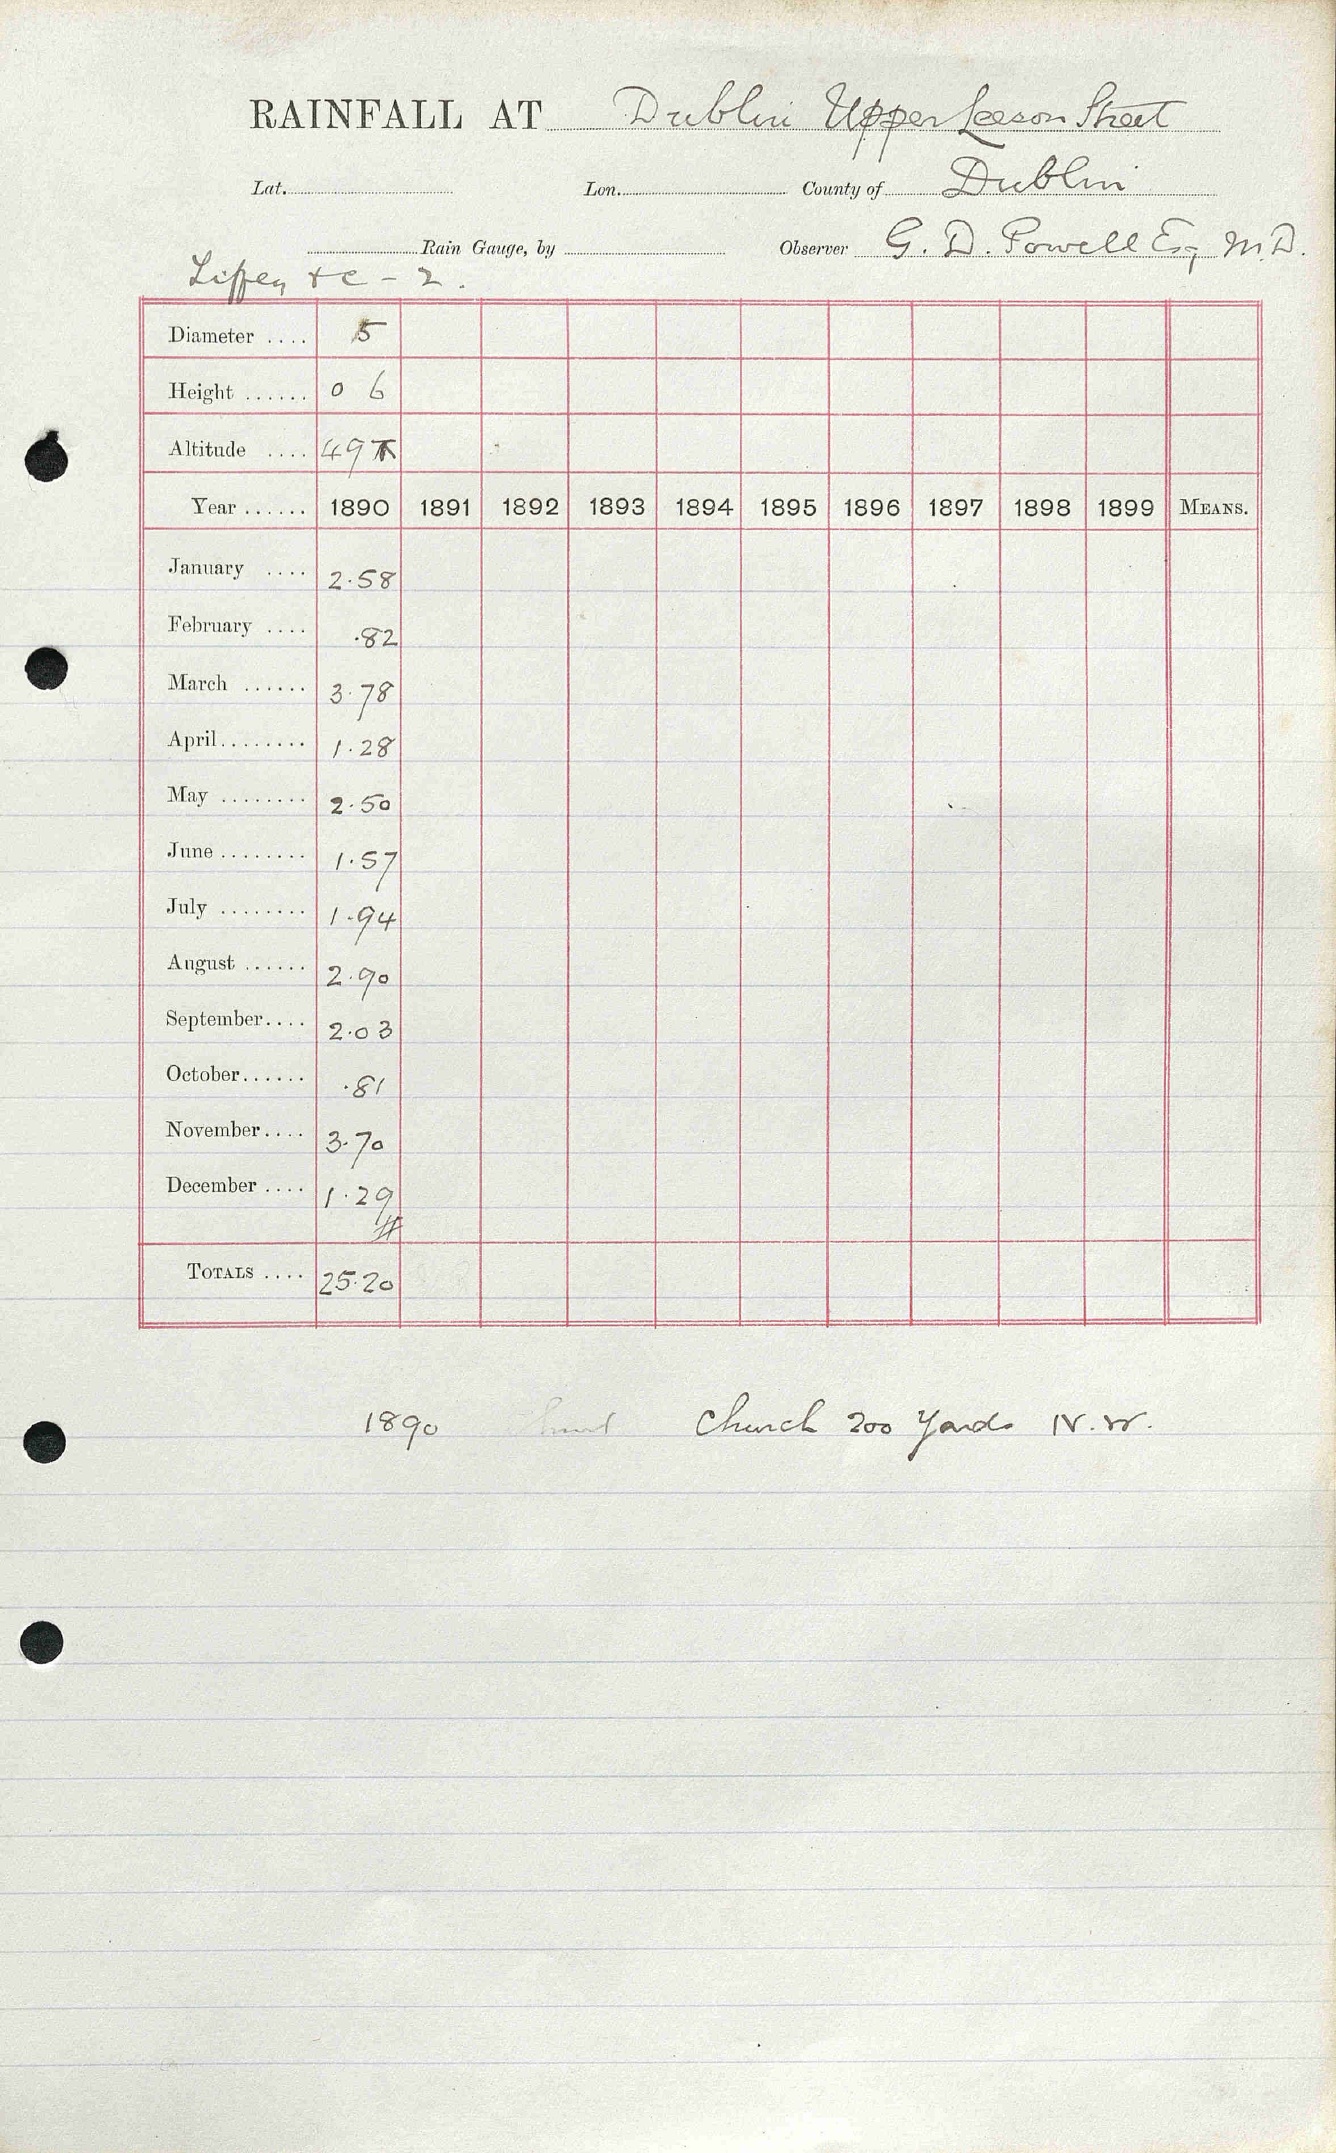 RAINFALL AT Dublin Upper Leeson Street
Lat. Lon. County of Dublin
Rain Gauge, by Observer G. D. Powell Esq M.D.
Liffey &c - 2.
Diameter .... 5
Height ...... 0 6
Altitude .... 49
Year ...... 1890 1891 1892 1893 1894 1895 1896 1897 1898 1899 MEANS.
January .... 2.58
February .... .82
March ...... 3.78
April........ 1.28
May ........ 2.50
June ........ 1.57
July ........ 1.94
August ...... 2.90
September.... 2.03
October...... .81
November.... 3.70
December .... 1.29
TOTALS .... 25.20
1890 Church 200 Yards N.W.